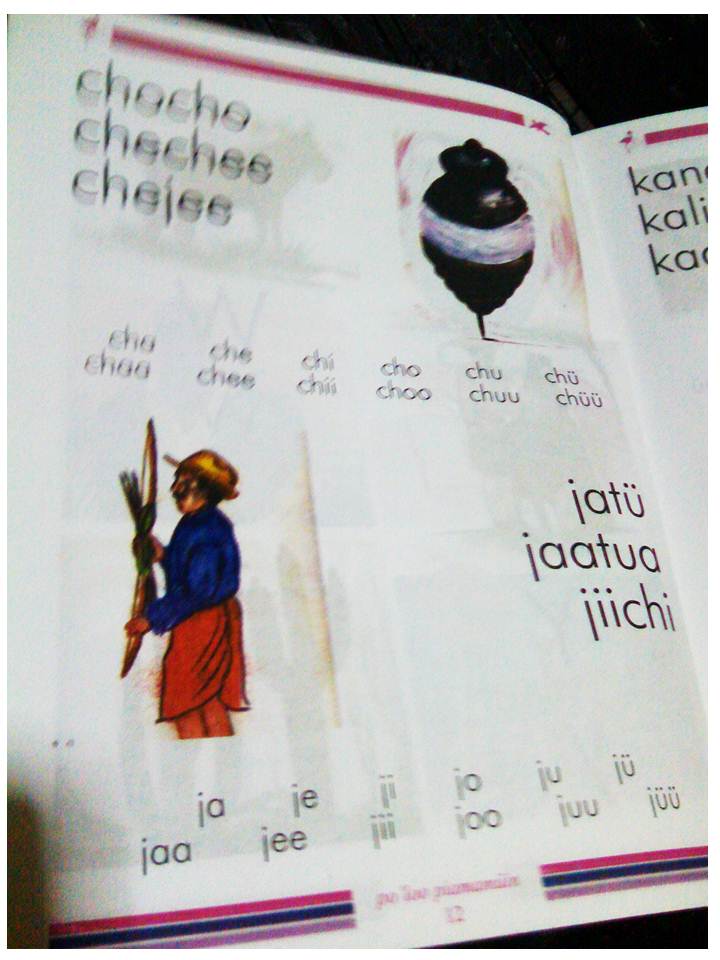 chocho
chechee
chejee
cha che chi cho chu chü
chaa chee chii choo chuu chüü
jatü
jaatua
jiichi
ja je ji jo ju jü
jaa jee jii joo juu jüü
12